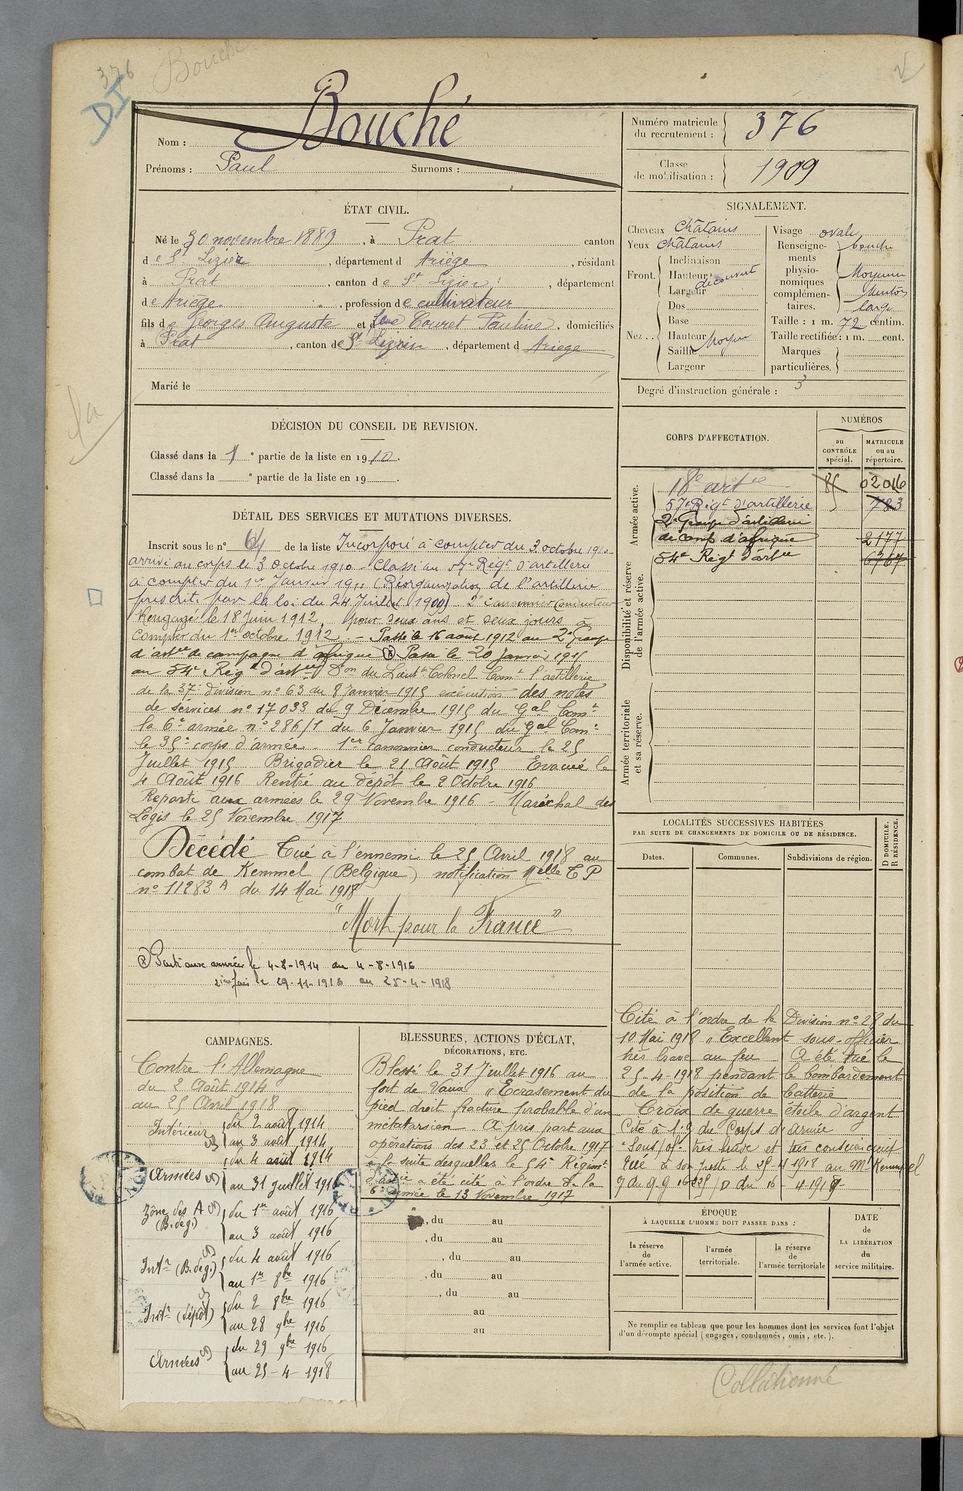 376 Bouché
DI
Nom : Bouché
Prénoms : Paul Surnoms :
Numéro matricule du recrutement : 376
Classe de mobilisation : 1909
ÉTAT CIVIL.
Né le 30 novembre 1889, à Prat canton
de St Lizier, département d Ariège, résidant
à Prat, canton de St Lizier, département
de Ariège, profession de cultivateur
fils de Georges Auguste et d Touret Pauline, domiciliés
à Prat, canton de St Lizier, département d Ariège
Marié le
SIGNALEMENT.
Cheveux châtains
Yeux châtains
Front. Inclinaison
Hauteur
Largeur
découvert
Nez.. Dos
Base
Hauteur moyen
Saillie
Largeur
Visage ovale
Renseignements physionomiques complémentaires. bouche
Moyenne
Menton
large
Taille : 1 m. 72 centim.
Taille rectifiée : 1 m. cent.
Marques particulières.
Degré d'instruction générale : 3
DÉCISION DU CONSEIL DE REVISION.
Classé dans la 1e partie de la liste en 1910.
Classé dans la e partie de la liste en 19
DÉTAIL DES SERVICES ET MUTATIONS DIVERSES.
Inscrit sous le n° 64 de la liste Incorporé à compter du 3 octobre 1910
arrivé au corps le 3 octobre 1910. Classé au 57e Régt d'artillerie
à compter du 1er Janvier 1911 (Réorganisation de l'artillerie
prescrite par la loi du 24 Juillet 1909) 2e canonnier conducteur
Rengagé le 18 Juin 1912, pour deux ans et deux jours à
compter du 1er octobre 1912. - Passé le 16 août 1912 au 2e Groupe
d'artie de campagne d'afrique Passé le 20 Janvier 1915
au 54e Régt d'artie Don du Lieutt Colonel Comt l'artillerie
de la 37e division n° 63 du 8 Janvier 1915 exécution des notes
de services n° 17033 du 9 Décembre 1915 du Gal Comt
la 6e armée n° 286/1 du 6 Janvier 1915 du Gal Comt
le 35e corps d'armée. 1er canonnier conducteur le 25
Juillet 1915 Brigadier le 21 Août 1915 Evacué le
4 Août 1916 Rentré au dépôt le 2 Octobre 1916
Reparti aux armées le 29 Novembre 1916 - Maréchal des
Logis le 25 Novembre 1917
Décédé Tué à l'ennemi le 25 Avril 1918 au
combat de Kemmel (Belgique) notification Melle EP
n° 11283 A du 14 Mai 1918
"Mort pour la France"
Parti aux armées le 4-8-1914 au 4-8-1916
2ème fois le 29-11-1916 au 25-4-1918
CORPS D'AFFECTATION.
NUMÉROS
au CONTRÔLE spécial.
MATRICULE ou au répertoire.
Armée active.
18e artie 85 02016
57e Régt d'artillerie 783
2e Groupe d'artillerie
de camp d'afrique 2177
54e Régt d'artie 6767
Disponibilité et réserve de l'armée active.
Armée territoriale et sa réserve.
LOCALITÉS SUCCESSIVES HABITÉES
PAR SUITE DE CHANGEMENTS DE DOMICILE OU DE RÉSIDENCE.
Dates. Communes. Subdivisions de région. D DOMICILE. R RÉSIDENCE.
Cité à l'ordre de la Division n° 28 du
10 Mai 1918 "Excellent sous-officier
très brave au feu. A été tué le
25-4-1918 pendant le bombardement
de la position de batterie
Croix de guerre étoile d'argent
CAMPAGNES.
Contre l'Allemagne
du 2 Août 1914
au 25 Avril 1918
Intérieur du 2 août 1914
au 3 août 1914
Armées du 4 août 1914
au 31 juillet 1916
Zône des A (B. dég.) du 1er août 1916
au 3 août 1916
Intr (B. dég.) du 4 août 1916
au 1er 8bre 1916
Intr (dépôt) du 2 8bre 1916
au 28 9bre 1916
Armées du 29 9bre 1916
au 25-4-1918
BLESSURES, ACTIONS D'ÉCLAT,
DÉCORATIONS, ETC.
Blessé le 31 Juillet 1916 au
fort de Vaux "Ecrasement du
pied droit fracture probable d'un
métatarsien. A pris part aux
opérations des 23 et 25 Octobre 1917
à la suite desquelles le 54e Régiment
d'artie a été cité à l'ordre de la
6e armée le 13 Novembre 1917
Cité à l'o. g. du Corps d'Armée
"Sous/of. très brave et très consciencieux
Tué à son poste le 25-4 1918 au Mt Kemmel
, du au
, du au
, du au
, du au
, du au
au
au
ÉPOQUE
À LAQUELLE L'HOMME DOIT PASSER DANS :
la réserve de l'armée active.
l'armée territoriale.
la réserve de l'armée territoriale
DATE de LA LIBÉRATION du service militaire.
Ne remplir ce tableau que pour les hommes dont les services font l'objet
d'un décompte spécial (engagés, condamnés, omis, etc.).
Collationné